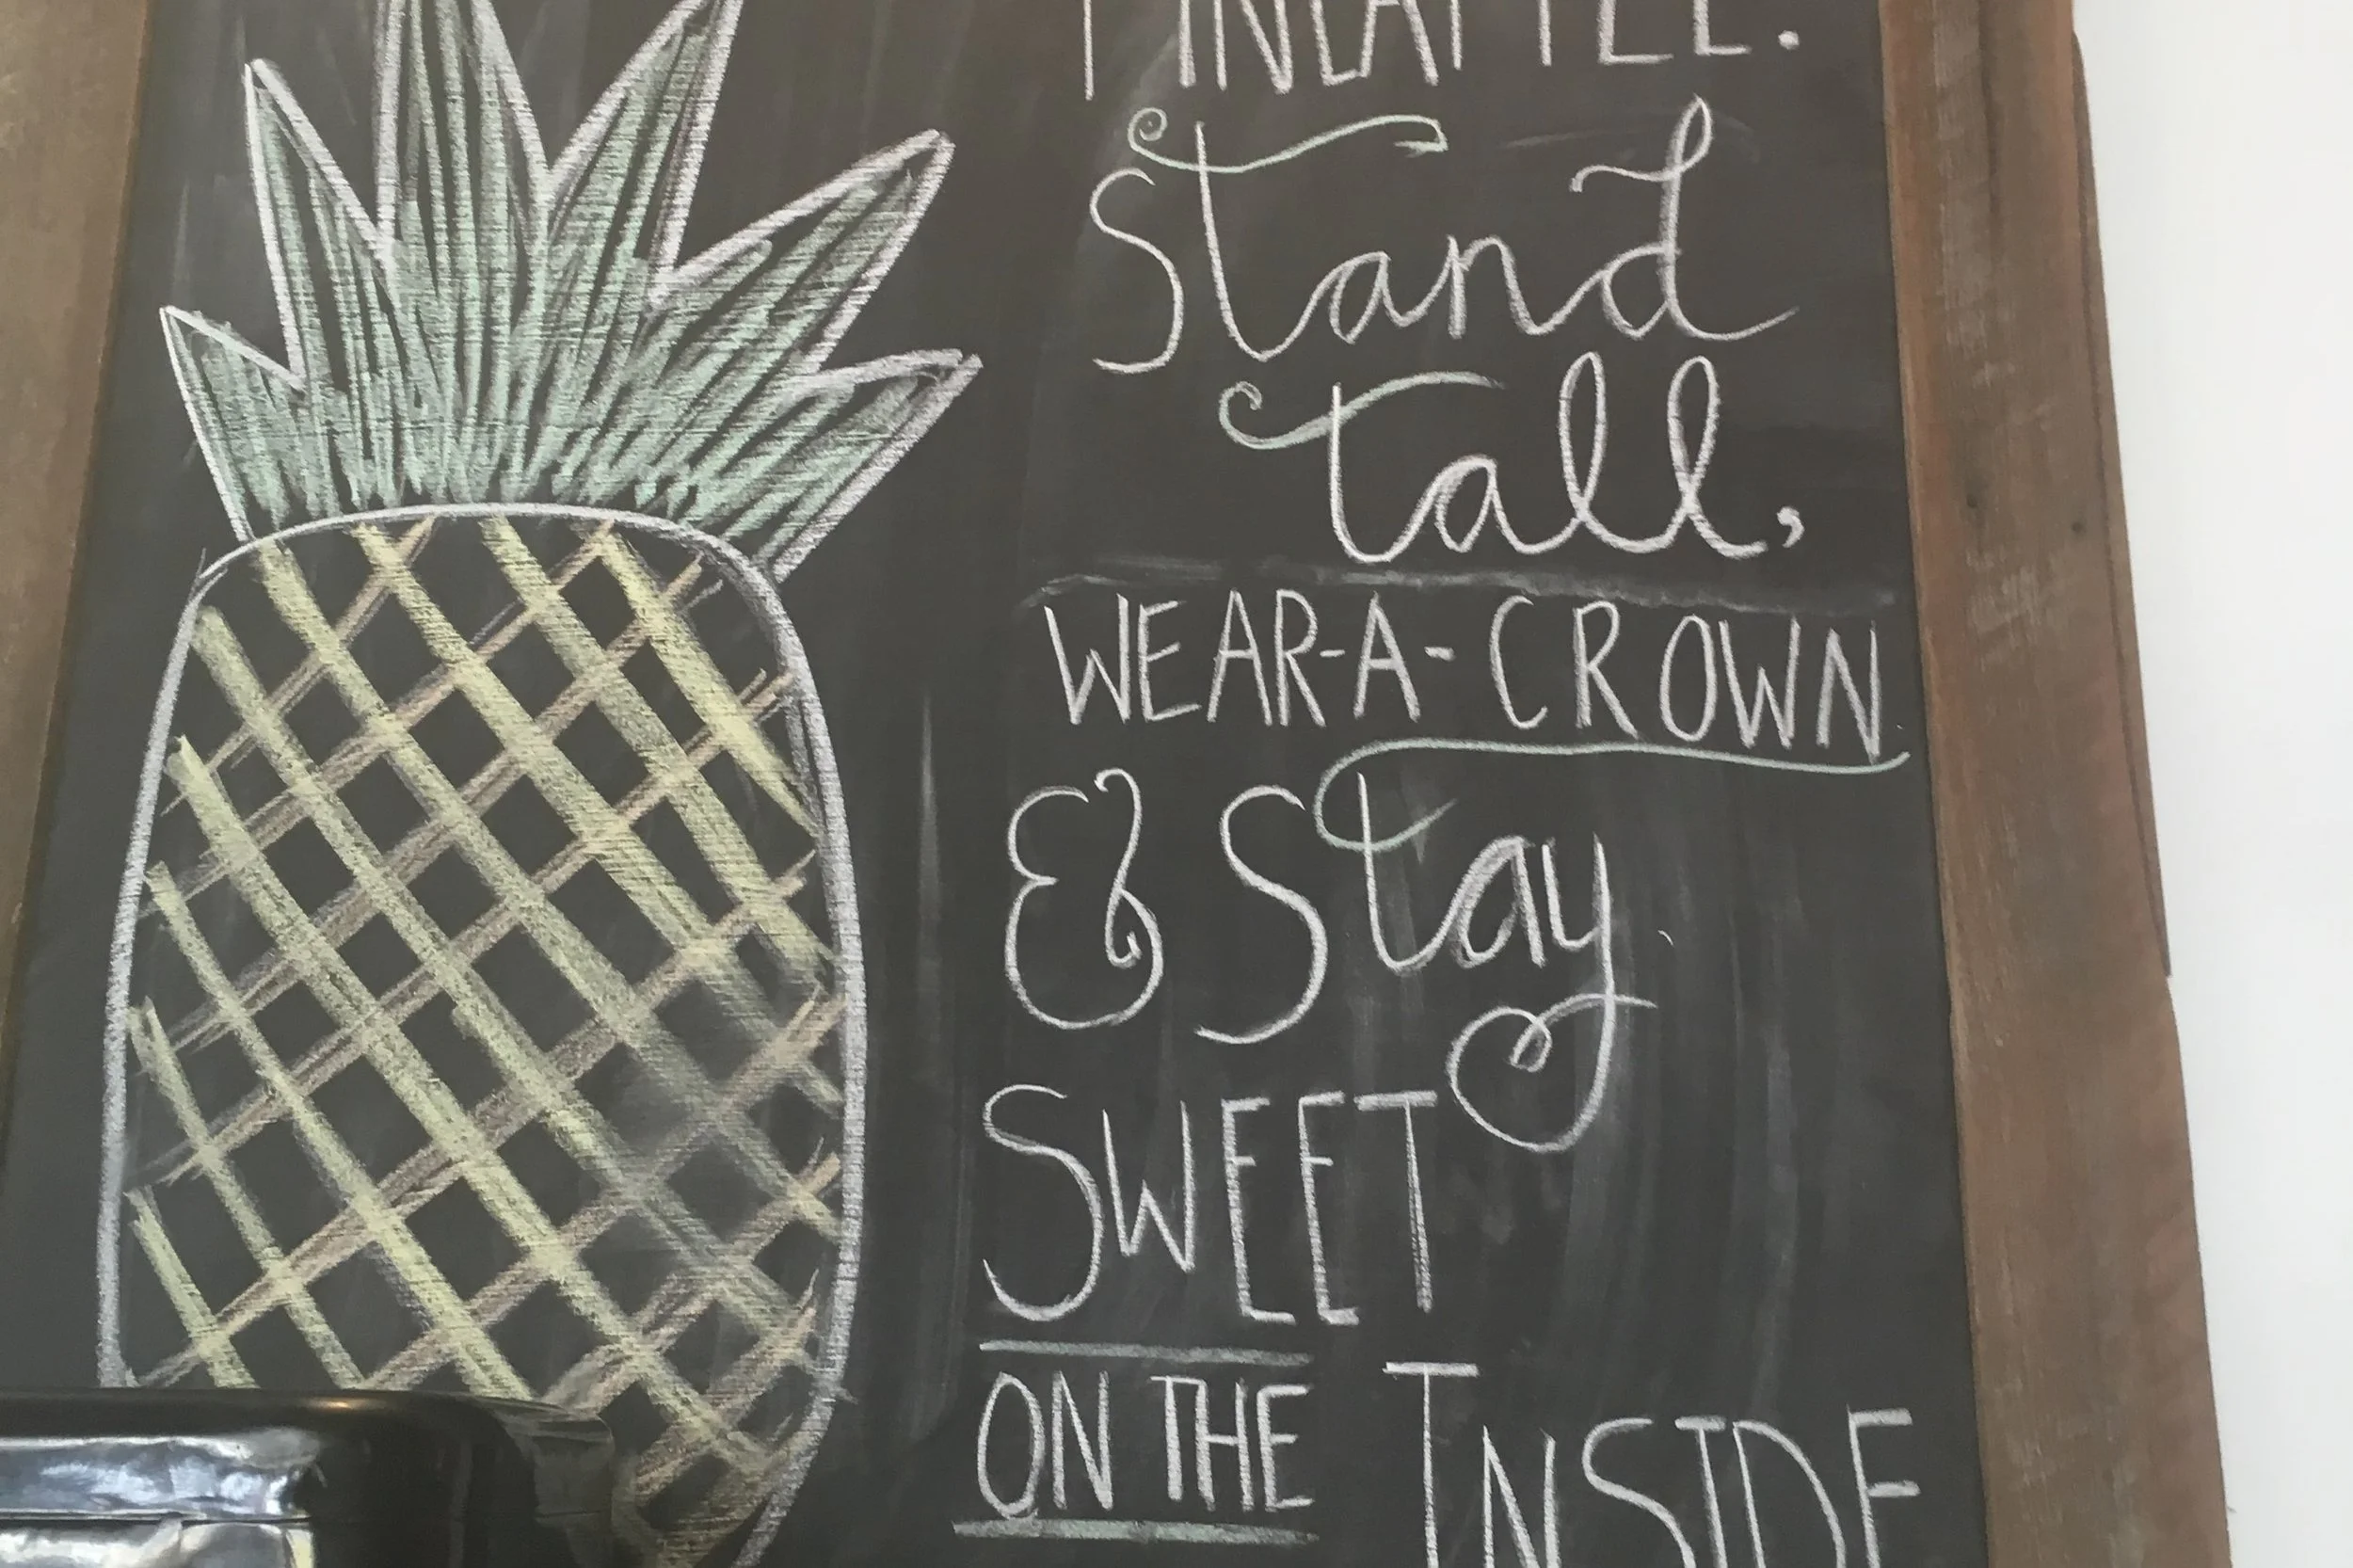 PINEAPPLE.
Stand
tall,
WEAR-A-CROWN
& Stay
SWEET
ON THE INSIDE